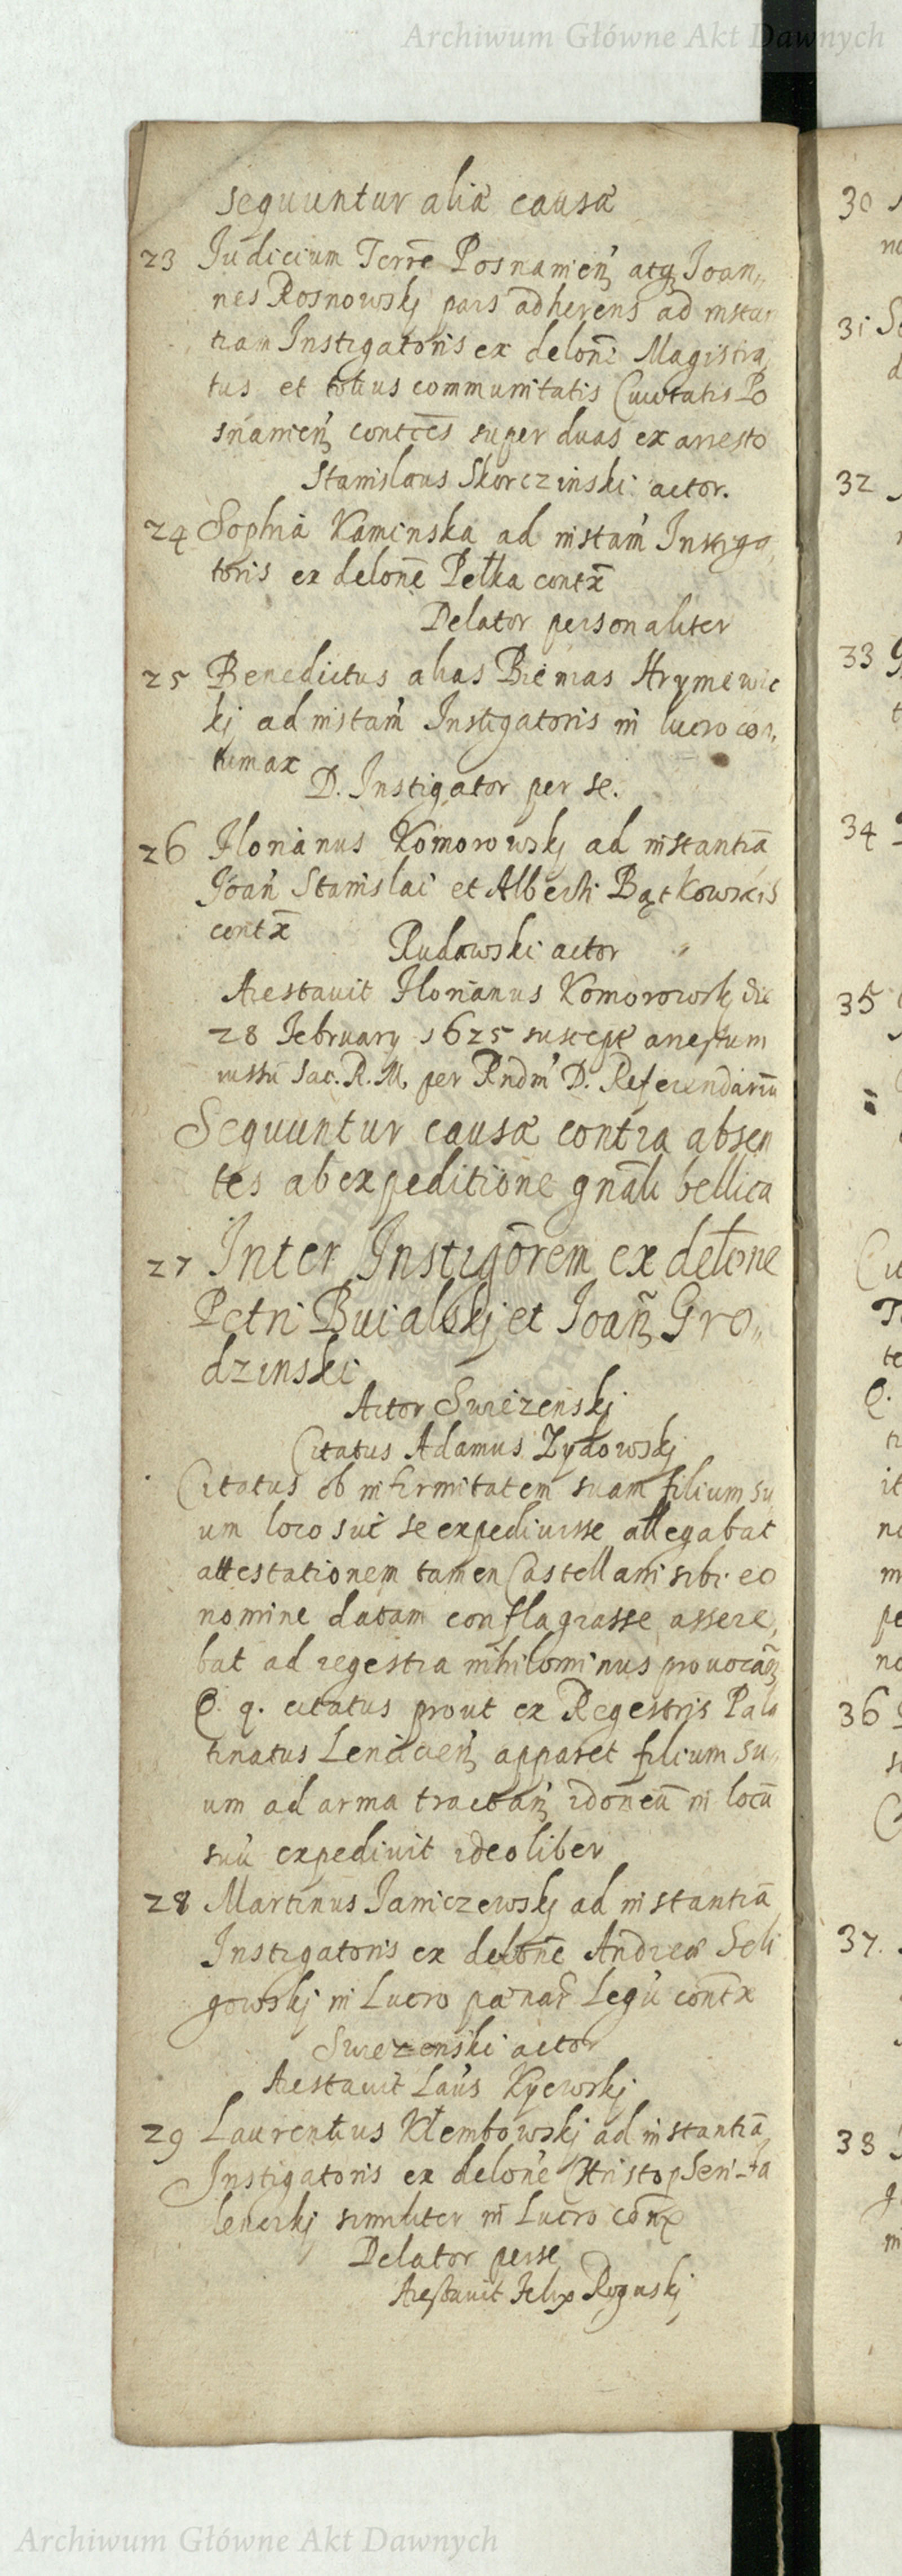 Archiwum Główne Akt Dawnych
sequuntur aliæ causæ
23 Iudicium Terrē Posnamień atq Joan„
nes Rosnowskj pars adherens ad instan
tiam Instigatoris ex delonē Magistra
tus et totius communitatis Civitatis Po
snamień contces super duas ex arresto
Stanislaus Skorczinski actor.
24 Sophia Kaminska ad instam Instiga,
toris ex delonē Pełka contx
Delator personaliter
25 Benedictus alias Bienias Hrymewic
kj ad instam Instigatoris in lucro con,
tumax
D. Instigator per se.
26 Florianus Komorowskj ad instantiā
Joan Stanislai et Alberti Bątkowskis
contx
Rudawski actor
Arestavit Florianus Komorowskj die
28 February 1625 suscept arrestum
iussu Sac. R. M. per Rndm D. Referendariū
Sequuntur causæ contra absen
tes ab expeditione gnāli bellica
27 Inter Instigōrem ex delone
Petri Buialskj et Joañ Gro„
dzinski
Actor Swiezenskj
Citatus Adamus Zydowskj
Citatus ob infirmitatem suam filium su
um loco sui se expedivisse allegabat
attestationem tamen Castellani sibi eo
nomine datam conflagrasse assere,
bat ad regestra nihilominus provocañ
Q. q. citatus prout ex Regestris Pala
tinatus Lencicień apparet filium su„
um ad arma tractań idoneū in locū
suū expedivit ideo liber
28 Martinus Janiczewskj ad instantiā
Instigatoris ex delonē Andreæ Seli
gowskj in Lucro pænar Legū contx
Swiezenski actor
Arestavit Laus Kyewskj
29 Laurentius Kłembowskj ad instantiā
Instigatoris ex delone Hristop Seri-Ja
lenckj similiter in Lucro conx
Delator perse
Arestavit Felix Roguskj
30
31
32
33
34
35
36
37.
38
Archiwum Główne Akt Dawnych